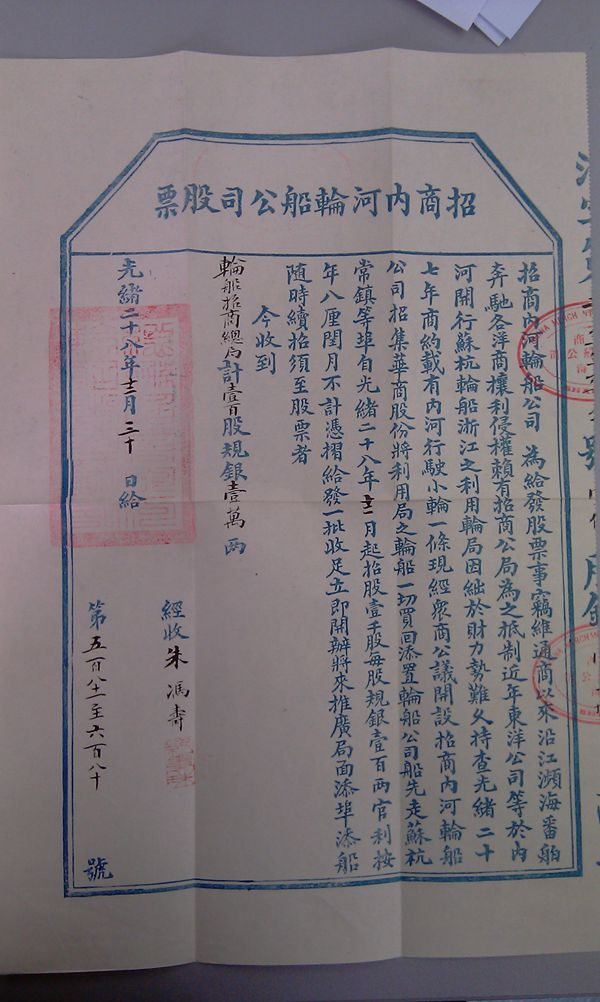 招商內河輪船公司股票
招商內河輪船公司 為給發股票事竊維通商以來沿江瀕海番舶
奔馳各洋商攘利侵權賴有招商公局為之抵制近年東洋公司等於內
河開行蘇杭輪船浙江之利用輪局因絀於財力勢難久持查光緒二十
七年商約載有內河行駛小輪一條現經眾商公議開設招商內河輪船
公司招集華商股份將利用局之輪船一切買回添置輪船公司船先走蘇杭
常鎮等埠自光緒二十八年十一月起招股壹千股每股規銀壹百兩官利按
年八厘閏月不計憑摺給發一批收足立即開辦將來推廣局面添埠添船
隨時續招須至股票者
今收到
輪船招商總局計壹百股規銀壹萬兩
經收朱馮壽
光緒二十八年十二月三十日給
第五百八十一至六百八十號
號
股銀